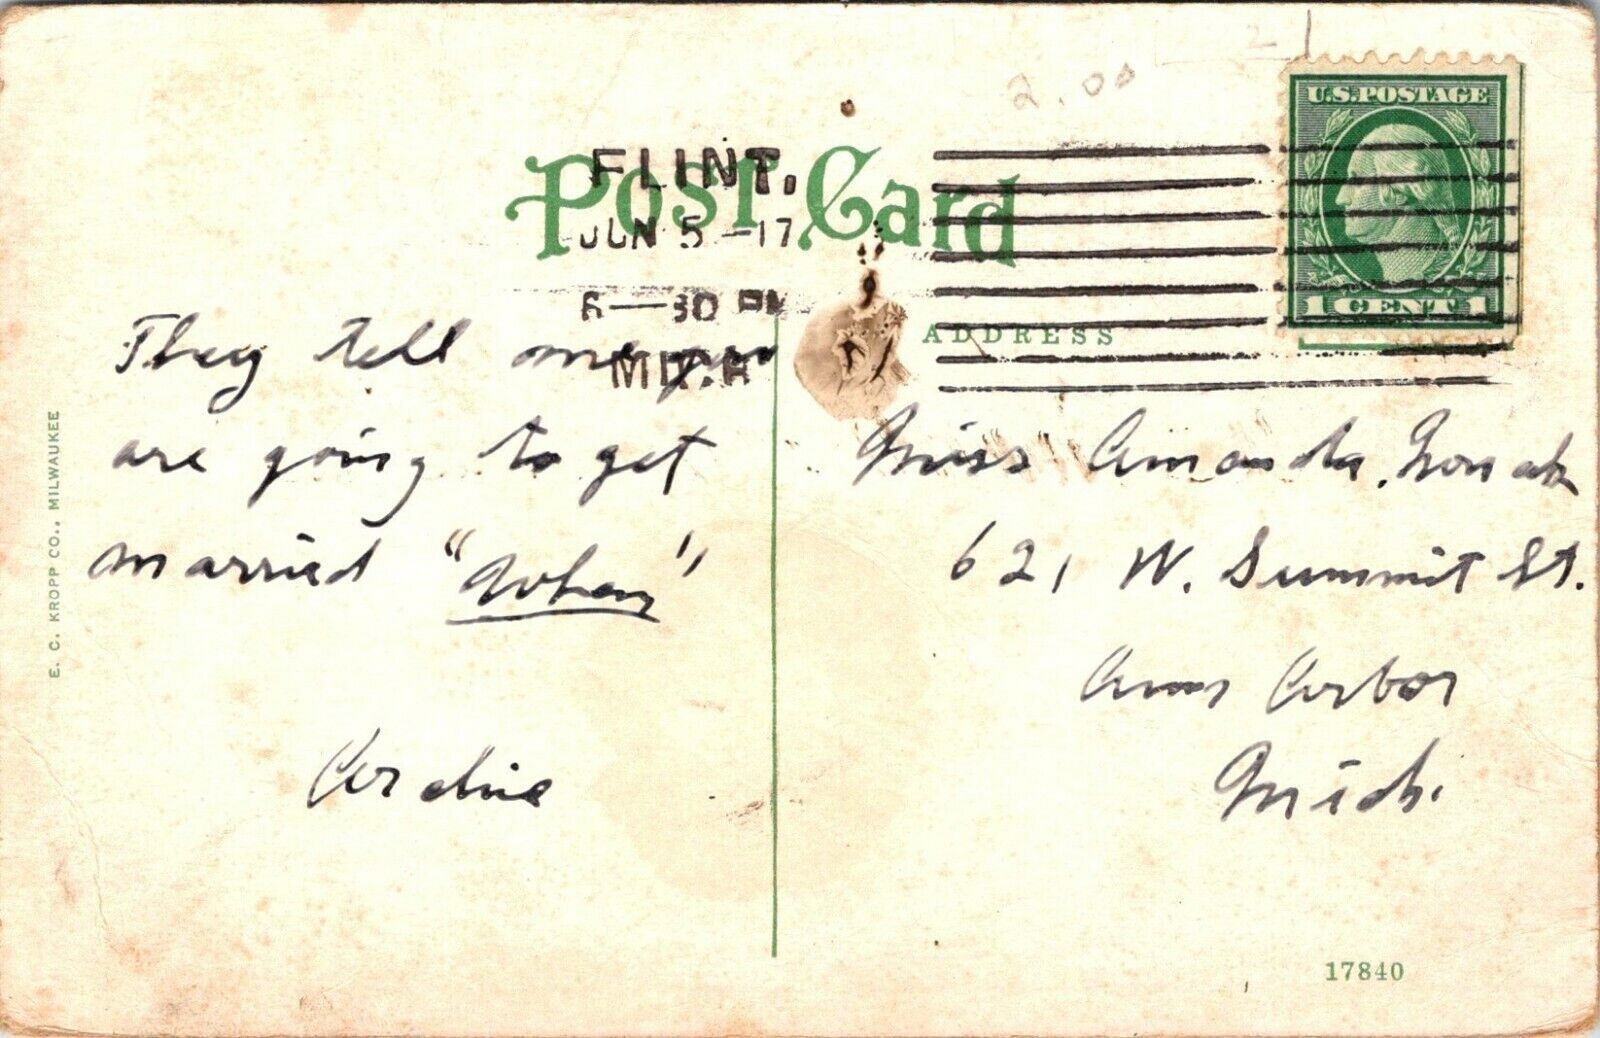 2.00
U.S.POSTAGE
1 CENT 1
POST CARD
FLINT,
JUN 5 -17
6-30 PM
MICH
ADDRESS
They tell me you
are going to get
married "When"
Miss Amanda
621 W. Summit St.
Ann Arbor
Mich.
E. C. KROPP CO., MILWAUKEE
17840